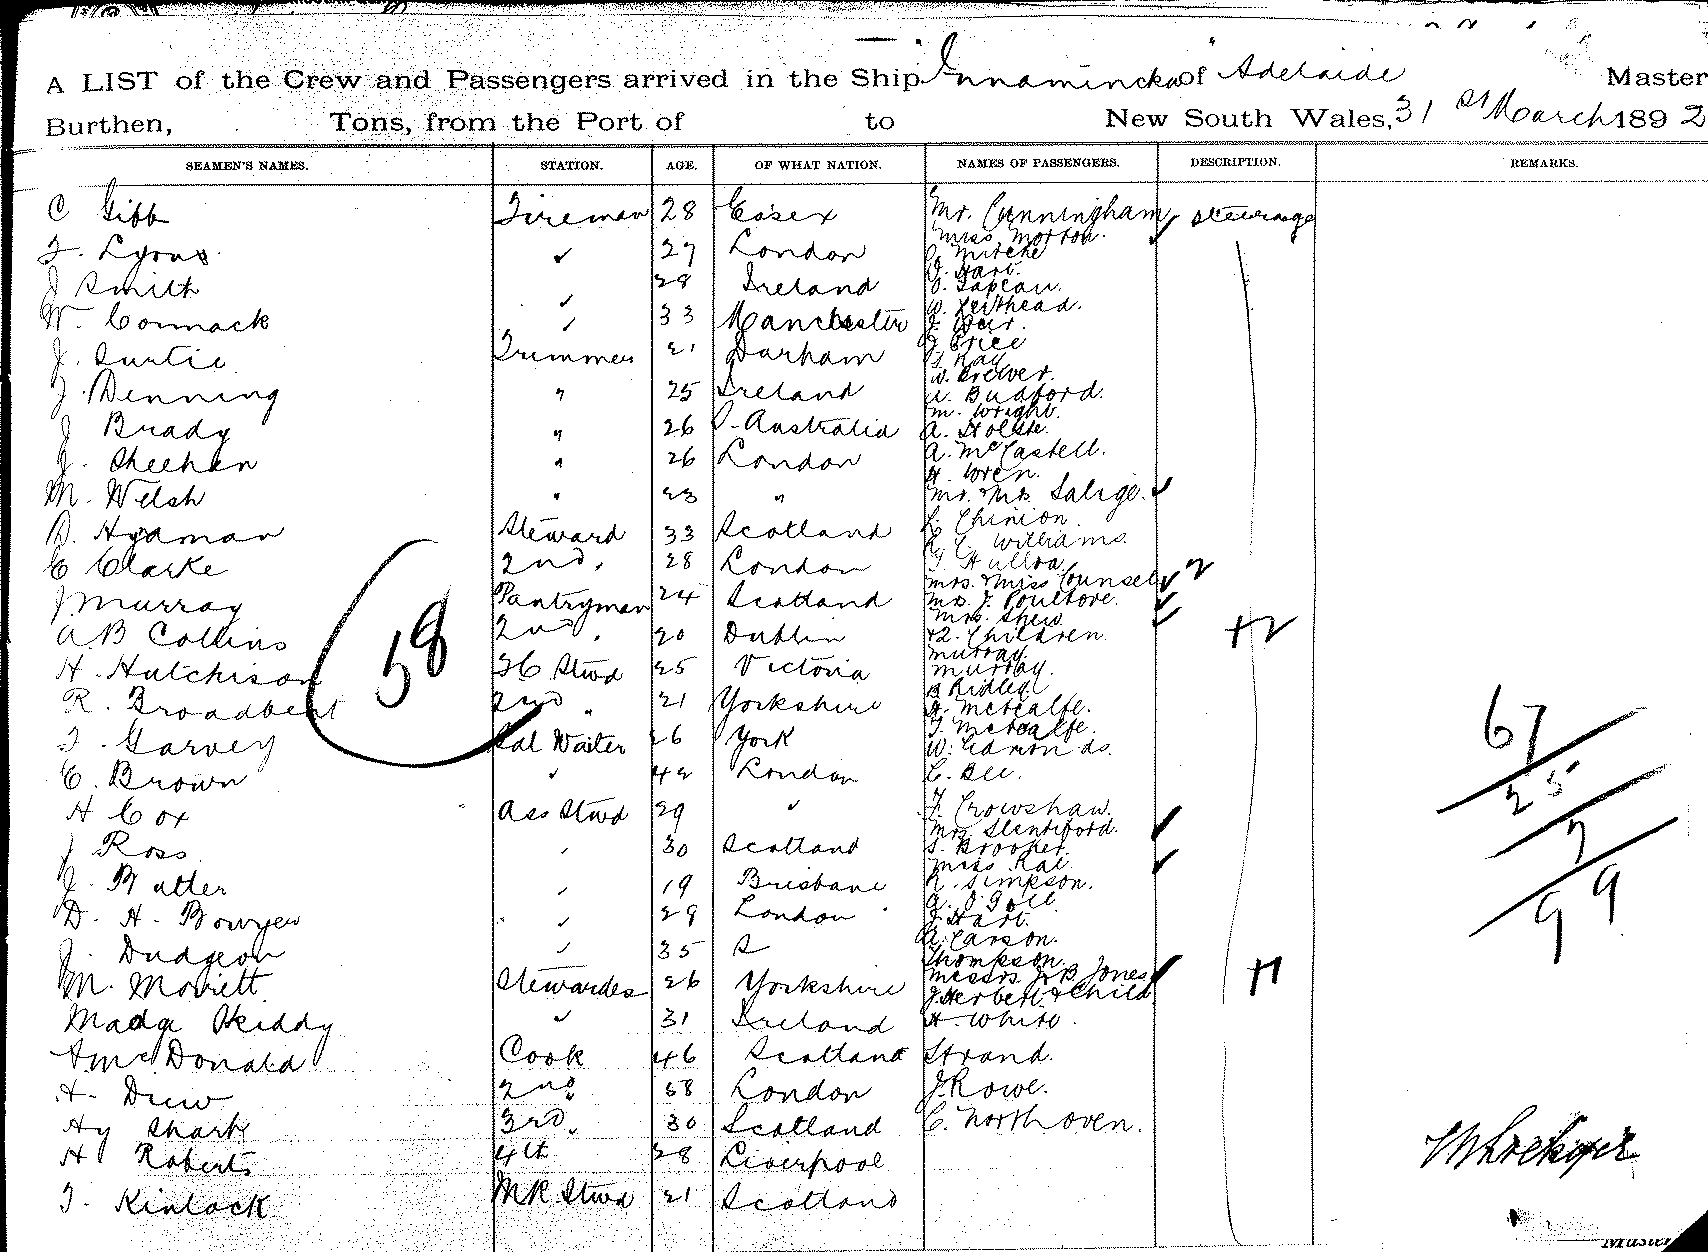 A LIST of the Crew and Passengers arrived in the Ship "Innamincka" of Adelaide Master
Burthen, Tons, from the Port of to New South Wales, 31st March 1892
SEAMEN'S NAMES. STATION. AGE. OF WHAT NATION. NAMES OF PASSENGERS. DESCRIPTION. REMARKS.
C Gibb Fireman 28 Essex Mr. Cunningham steerage
Miss Morton.
F. Lyons ✓ 27 London
J. Hart.
J Smith ✓ 28 Ireland
W. Leithead.
W. Cormack ✓ 33 Manchester J. Weir.
J. Surtie Trimmer 21 Durham J Price
T Kay
W. Brewer.
J. Denning " 25 Ireland A. Budford.
M. Wright.
J Brady " 26 S. Australia A. Holste.
J. Sheehan " 26 London A. McCastell.
H. Wren.
M. Welsh " 23 " Mr. Mrs. Salige.
D. Hydman Steward 33 Scotland L. Chinion.
Williams.
C Clarke 2nd " 28 London
Mrs. & Miss Counsel
J Murray Pantryman 24 Scotland Mrs. J. Poultore.
Mrs. Shew
A B Collins 2nd " 20 Dublin & 2. Children. +2
Murray.
H. Hutchison FC Stwd 25 Victoria Murray.
B Ridley
R. Broadbent 2nd " 21 Yorkshire G. Metcalfe.
58
T. Metcalfe.
T. Garvey Sal Waiter 26 York W. Edmonds.
C. Brown ✓ 42 London C. Bee.
H Cox Ass Stwd 29 " F. Crowshaw.
Mrs. Slentiford.
J Ross " 30 Scotland S. Brooker.
Miss Rae
J. Butler " 19 Brisbane R. Simpson.
D. H. Bowyer " 29 London J. Hart.
J. Dudgeon " 35 A. Carson.
Thompson.
M. Morrett Stewardess 26 Yorkshire Messrs J & B Jones +1
J Herbert & Child
Madge Skiddy " 31 Ireland H. White.
A McDonald Cook 46 Scotland Strand.
H. Drew 2nd " 58 London J. Rowe.
Hy Shark 3rd " 30 Scotland C. Northoven.
H Roberts 4th 28 Liverpool
T. Kinlock MR Stwd 21 Scotland
67
25
7
99